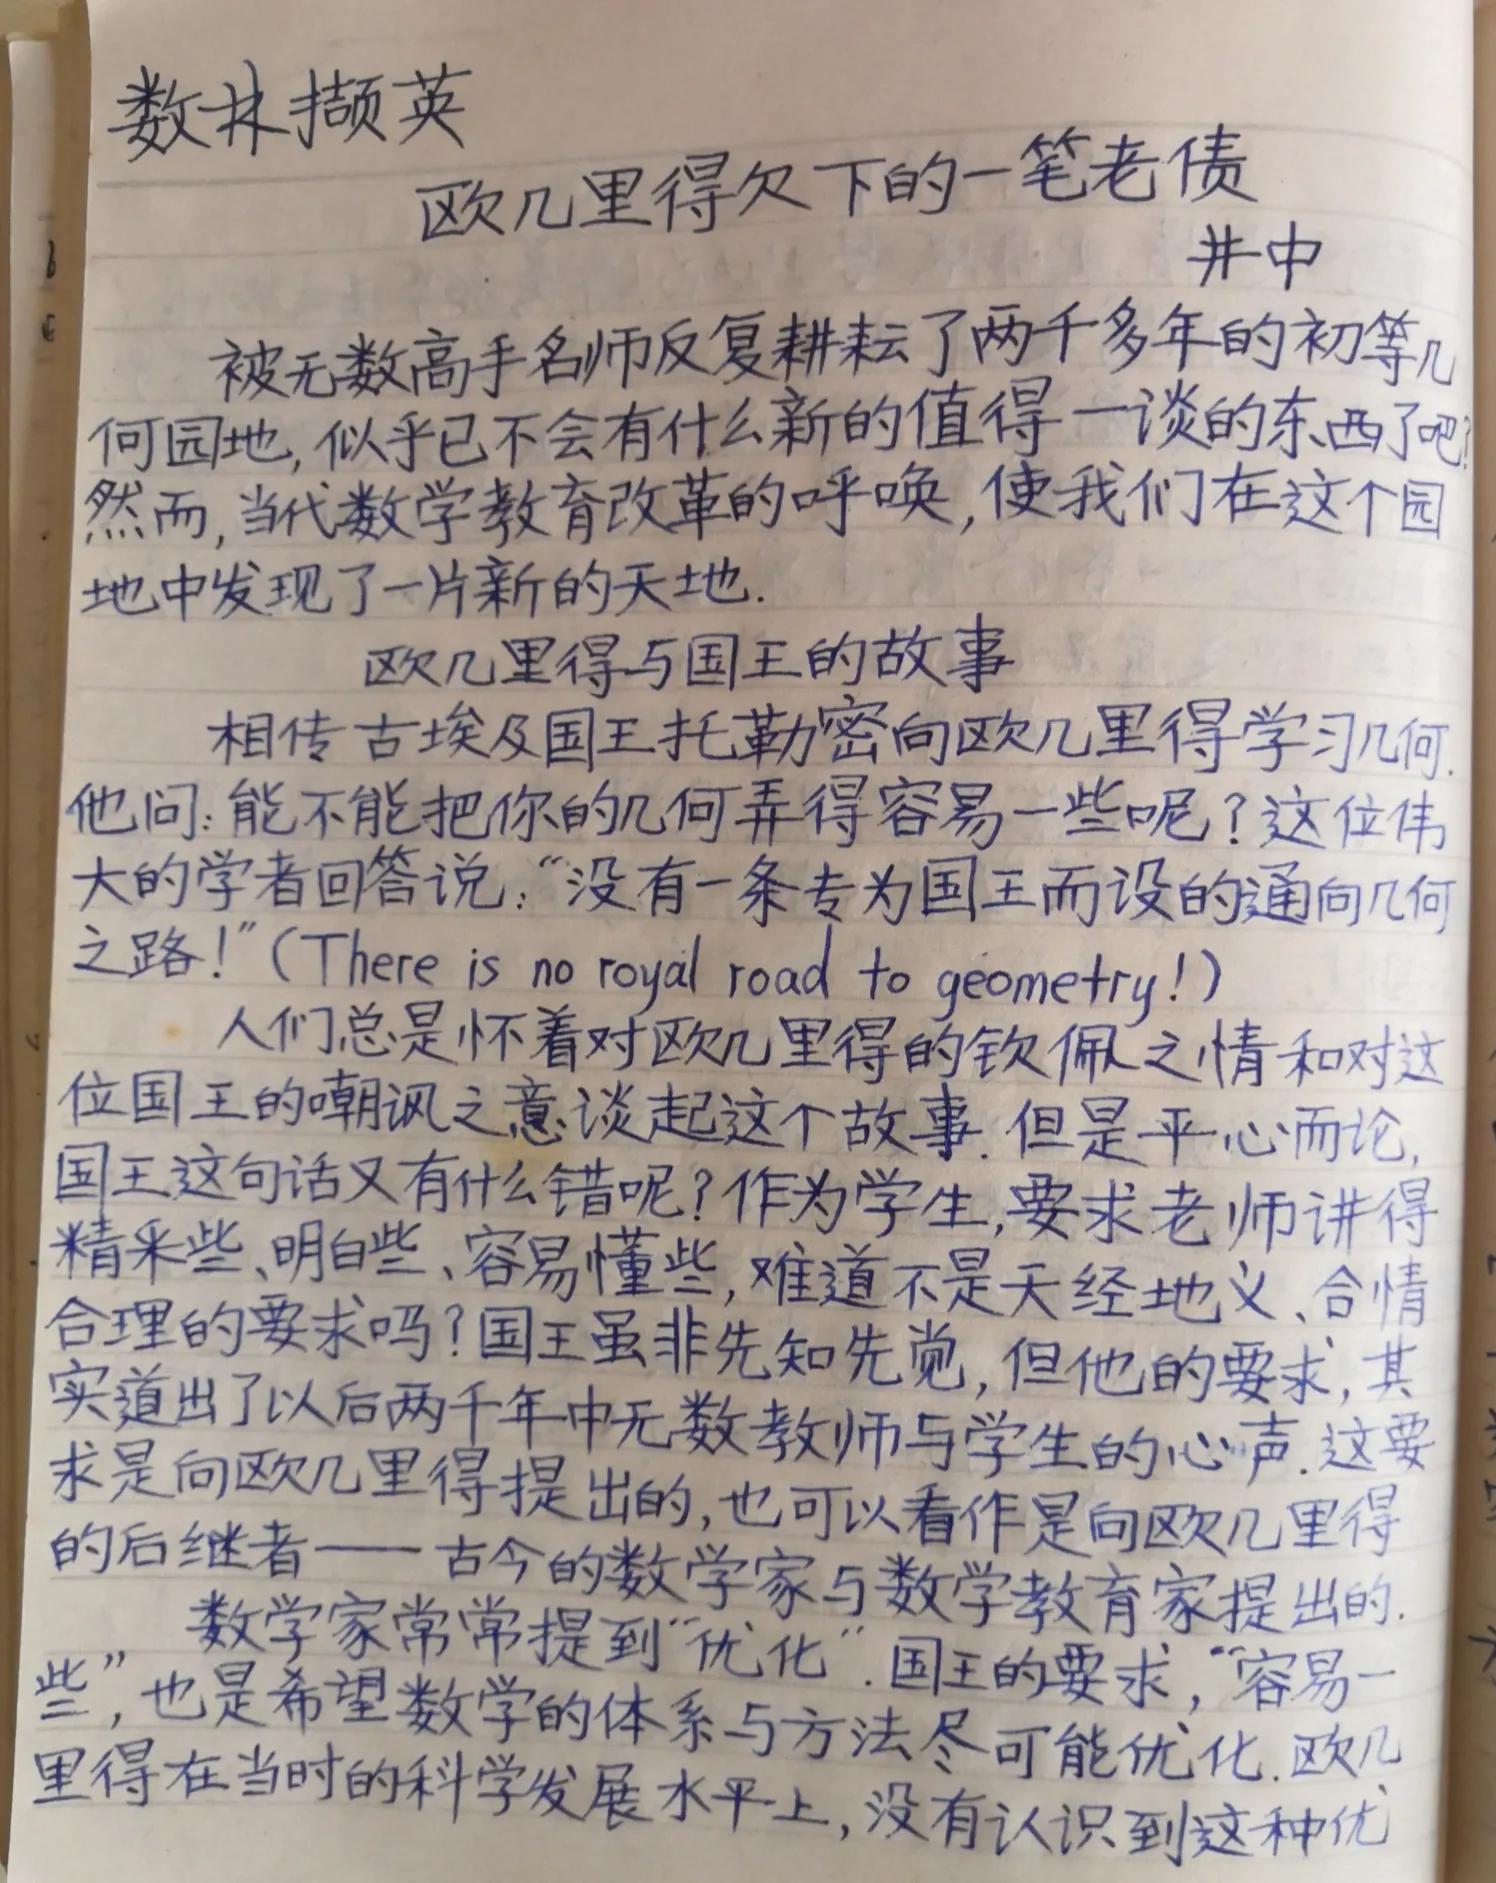 数林撷英
欧几里得欠下的一笔老债
井中
被无数高手名师反复耕耘了两千多年的初等几
何园地,似乎已不会有什么新的值得一谈的东西了吧?
然而,当代数学教育改革的呼唤,使我们在这个园
地中发现了一片新的天地.
欧几里得与国王的故事
相传古埃及国王托勒密向欧几里得学习几何.
他问:能不能把你的几何弄得容易一些呢?这位伟
大的学者回答说:“没有一条专为国王而设的通向几何
之路!”(There is no royal road to geometry!)
人们总是怀着对欧几里得的钦佩之情和对这
位国王的嘲讽之意谈起这个故事.但是平心而论,
国王这句话又有什么错呢?作为学生,要求老师讲得
精采些、明白些、容易懂些,难道不是天经地义、合情
合理的要求吗?国王虽非先知先觉,但他的要求,其
实道出了以后两千年中无数教师与学生的心声.这要
求是向欧几里得提出的,也可以看作是向欧几里得
的后继者——古今的数学家与数学教育家提出的.
数学家常常提到“优化”.国王的要求,“容易一
些”,也是希望数学的体系与方法尽可能优化.欧几
里得在当时的科学发展水平上,没有认识到这种优